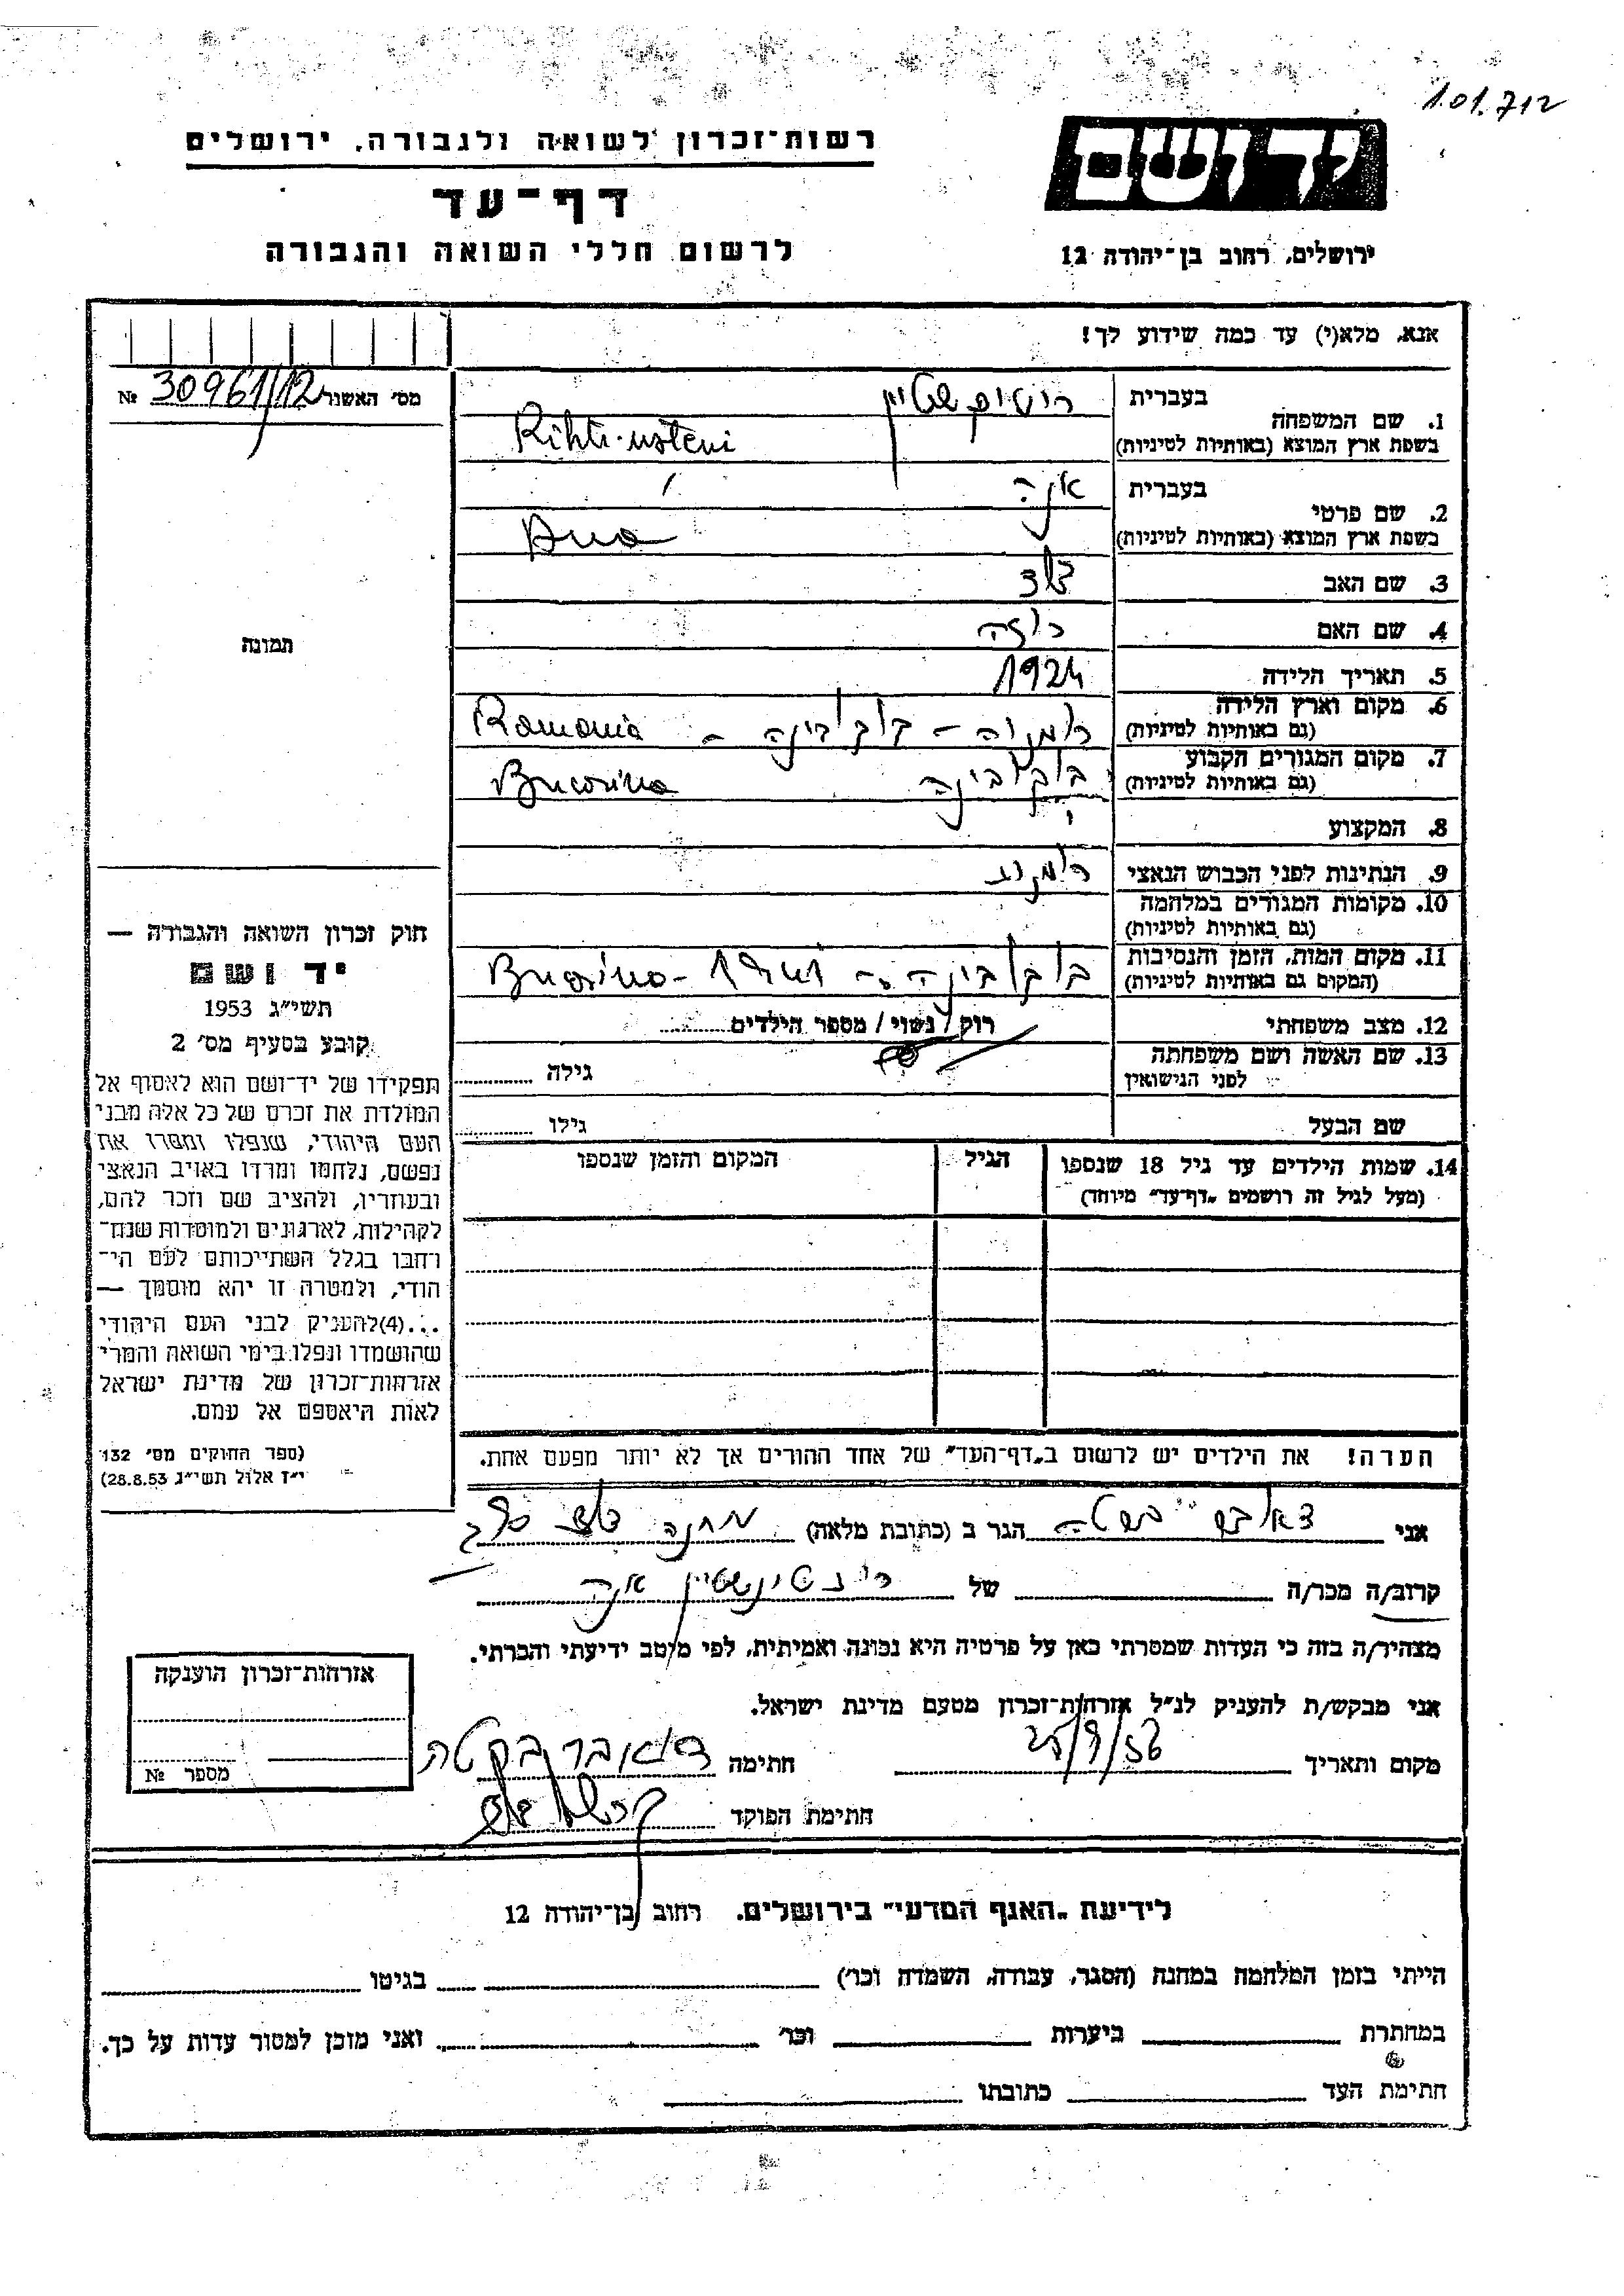 101.712
יד ושם
רשות־זכרון לשואה ולגבורה, ירושלים
דף־עד
לרשום חללי השואה והגבורה
ירושלים, רחוב בן־יהודה 12
אנא, מלא(י) עד כמה שידוע לך!
מס׳ האשנר 30961/12 №
1. שם המשפחה
בעברית
בשפת ארץ המוצא (באותיות לטיניות)
2. שם פרטי
בעברית אנה
בשפת ארץ המוצא (באותיות לטיניות) Ana
3. שם האב
4. שם האם רוזה
5. תאריך הלידה 1924
6. מקום וארץ הלידה
(גם באותיות לטיניות) רומניה – בוקובינה – Romania
7. מקום המגורים הקבוע
(גם באותיות לטיניות) בוקובינה Bucovina
8. המקצוע
9. הנתינות לפני הכבוש הנאצי
10. מקומות המגורים במלחמה
(גם באותיות לטיניות)
11. מקום המות, הזמן והנסיבות
(המקום גם באותיות לטיניות) בוקובינה – Bucovina
12. מצב משפחתי רוק / נשוי / מספר הילדים
13. שם האשה ושם משפחתה
לפני הנישואין גילה
שם הבעל גילו
14. שמות הילדים עד גיל 18 שנספו הגיל המקום והזמן שנספו
(מעל לגיל זה רושמים „דף־עד״ מיוחד)
הערה! את הילדים יש לרשום ב„דף־העד״ של אחד ההורים אך לא יותר מפעם אחת.
תמונה
חוק זכרון השואה והגבורה —
יד ושם
תשי״ג 1953
קובע בסעיף מס׳ 2
תפקידו של יד־ושם הוא לאסוף אל
המולדת את זכרם של כל אלה מבני
העם היהודי, שנפלו ומסרו את
נפשם, נלחמו ומרדו באויב הנאצי
ובעוזריו, ולהציב שם וזכר להם,
לקהילות, לארגונים ולמוסדות שנח־
רחבו בגלל השתייכותם לעם הי־
הודי, ולמטרה זו יהא מוסמך —
...(4)להעניק לבני העם היהודי
שהושמדו ונפלו בימי השואה והמרי
אזרחות־זכרון של מדינת ישראל
לאות היאספם אל עמם.
(ספר החוקים מס׳ 132
י״ז אלול תשי״ג 28.8.53)
אני הגר ב (כתובת מלאה) מחנה
קרוב/ה מכר/ה של אנה
מצהיר/ה בזה כי העדות שמסרתי כאן על פרטיה היא נכונה ואמיתית, לפי מיטב ידיעתי והכרתי.
אני מבקש/ת להעניק לנ״ל אזרחות־זכרון מטעם מדינת ישראל.
מקום ותאריך חתימה
חתימת הפוקד
אזרחות־זכרון הוענקה
מספר №
לידיעת „האגף המדעי״ בירושלים, רחוב בן־יהודה 12
הייתי בזמן המלחמה במחנה (הסגר, עבודה, השמדה וכו׳) בגיטו
במחתרת ביערות וכו׳ ואני מוכן למסור עדות על כך.
חתימת העד כתובתו